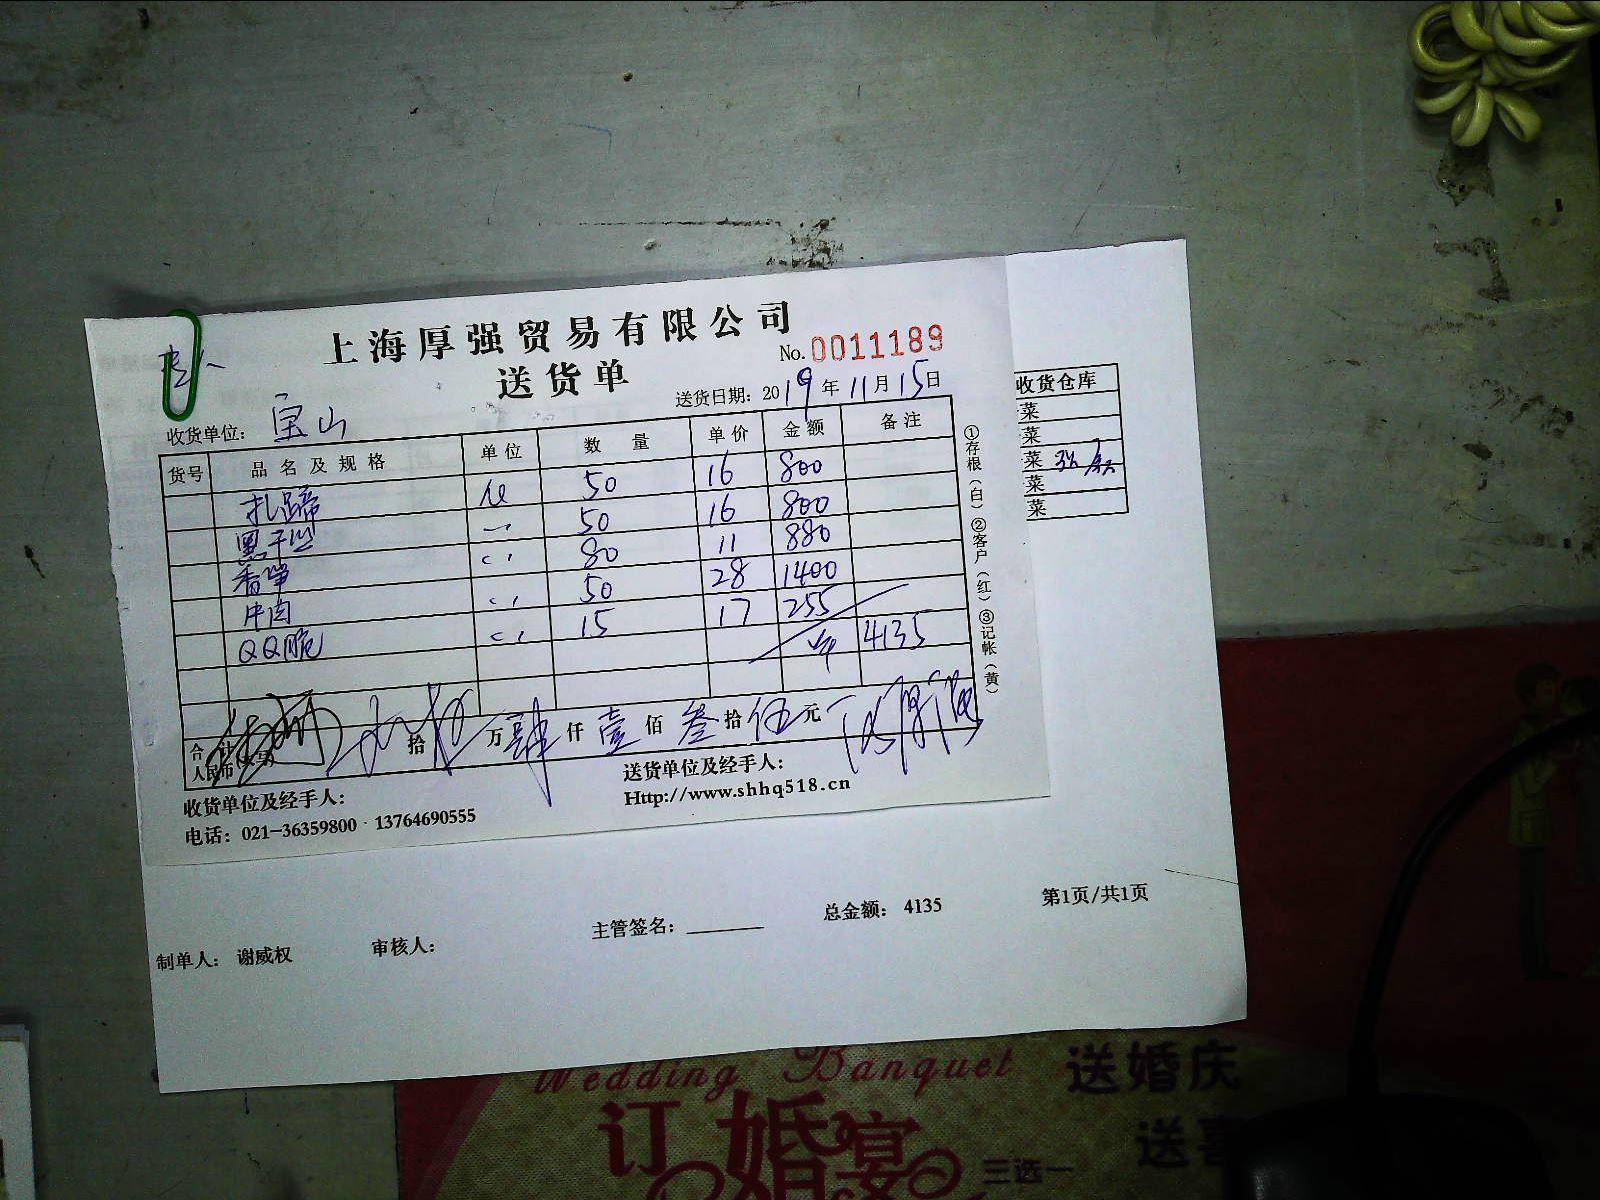 上海厚强贸易有限公司
No. 0011189
送货单
送货日期: 2019年11月15日
收货单位: 宝山
货号 品名及规格 单位 数量 单价 金额 备注
扎蹄 50 16 800
黑千丝 50 16 800
香笋 80 11 880
牛肉 50 28 1400
QQ脆 15 17 255
4135
合计人民币(大写) 拾 万肆仟壹佰叁拾伍元
①存根(白)②客户(红)③记帐(黄)
收货单位及经手人:
送货单位及经手人:
电话: 021-36359800 · 13764690555
Http://www.shhq518.cn
收货仓库
菜
菜
菜
菜
菜
制单人: 谢威权 审核人: 主管签名: 总金额: 4135 第1页/共1页
Wedding Banquet
订婚宴
三选一
送婚庆
送喜